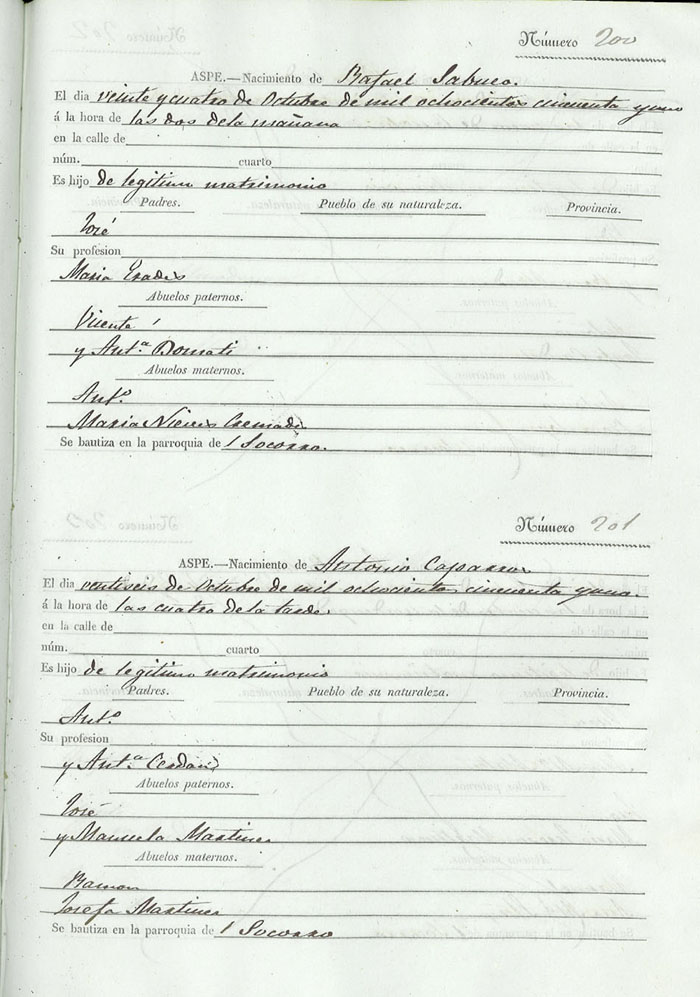 Número 200
ASPE.—Nacimiento de Rafael Sabuco.
El dia veinte y cuatro de Octubre de mil ochocientos cincuenta y uno
á la hora de las dos de la mañana
en la calle de
núm. cuarto
Es hijo de legitimo matrimonio
Padres. Pueblo de su naturaleza. Provincia.
José
Su profesion
Maria Erades
Abuelos paternos.
Vicente
y Ant.ª Bonati
Abuelos maternos.
Ant.º
Maria Nieves Cremades
Se bautiza en la parroquia de l Socorro.
Número 201
ASPE.—Nacimiento de Antonio Caparros
El dia ventiseis de Octubre de mil ochocientos cincuenta y uno.
á la hora de las cuatro de la tarde.
en la calle de
núm. cuarto
Es hijo de legitimo matrimonio
Padres. Pueblo de su naturaleza. Provincia.
Ant.º
Su profesion
y Ant.ª Cerdan
Abuelos paternos.
José
y Manuela Martinez
Abuelos maternos.
Ramon
Josefa Martinez
Se bautiza en la parroquia de l Socorro